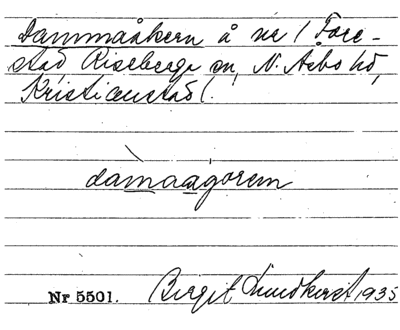 Dammaåkern å nr 1 Fore-
stad Riseberga sn, N. Åsbo hd,
Kristianstad l.
damaagorem
Nr 5501. Birgit Lundkvist 1935